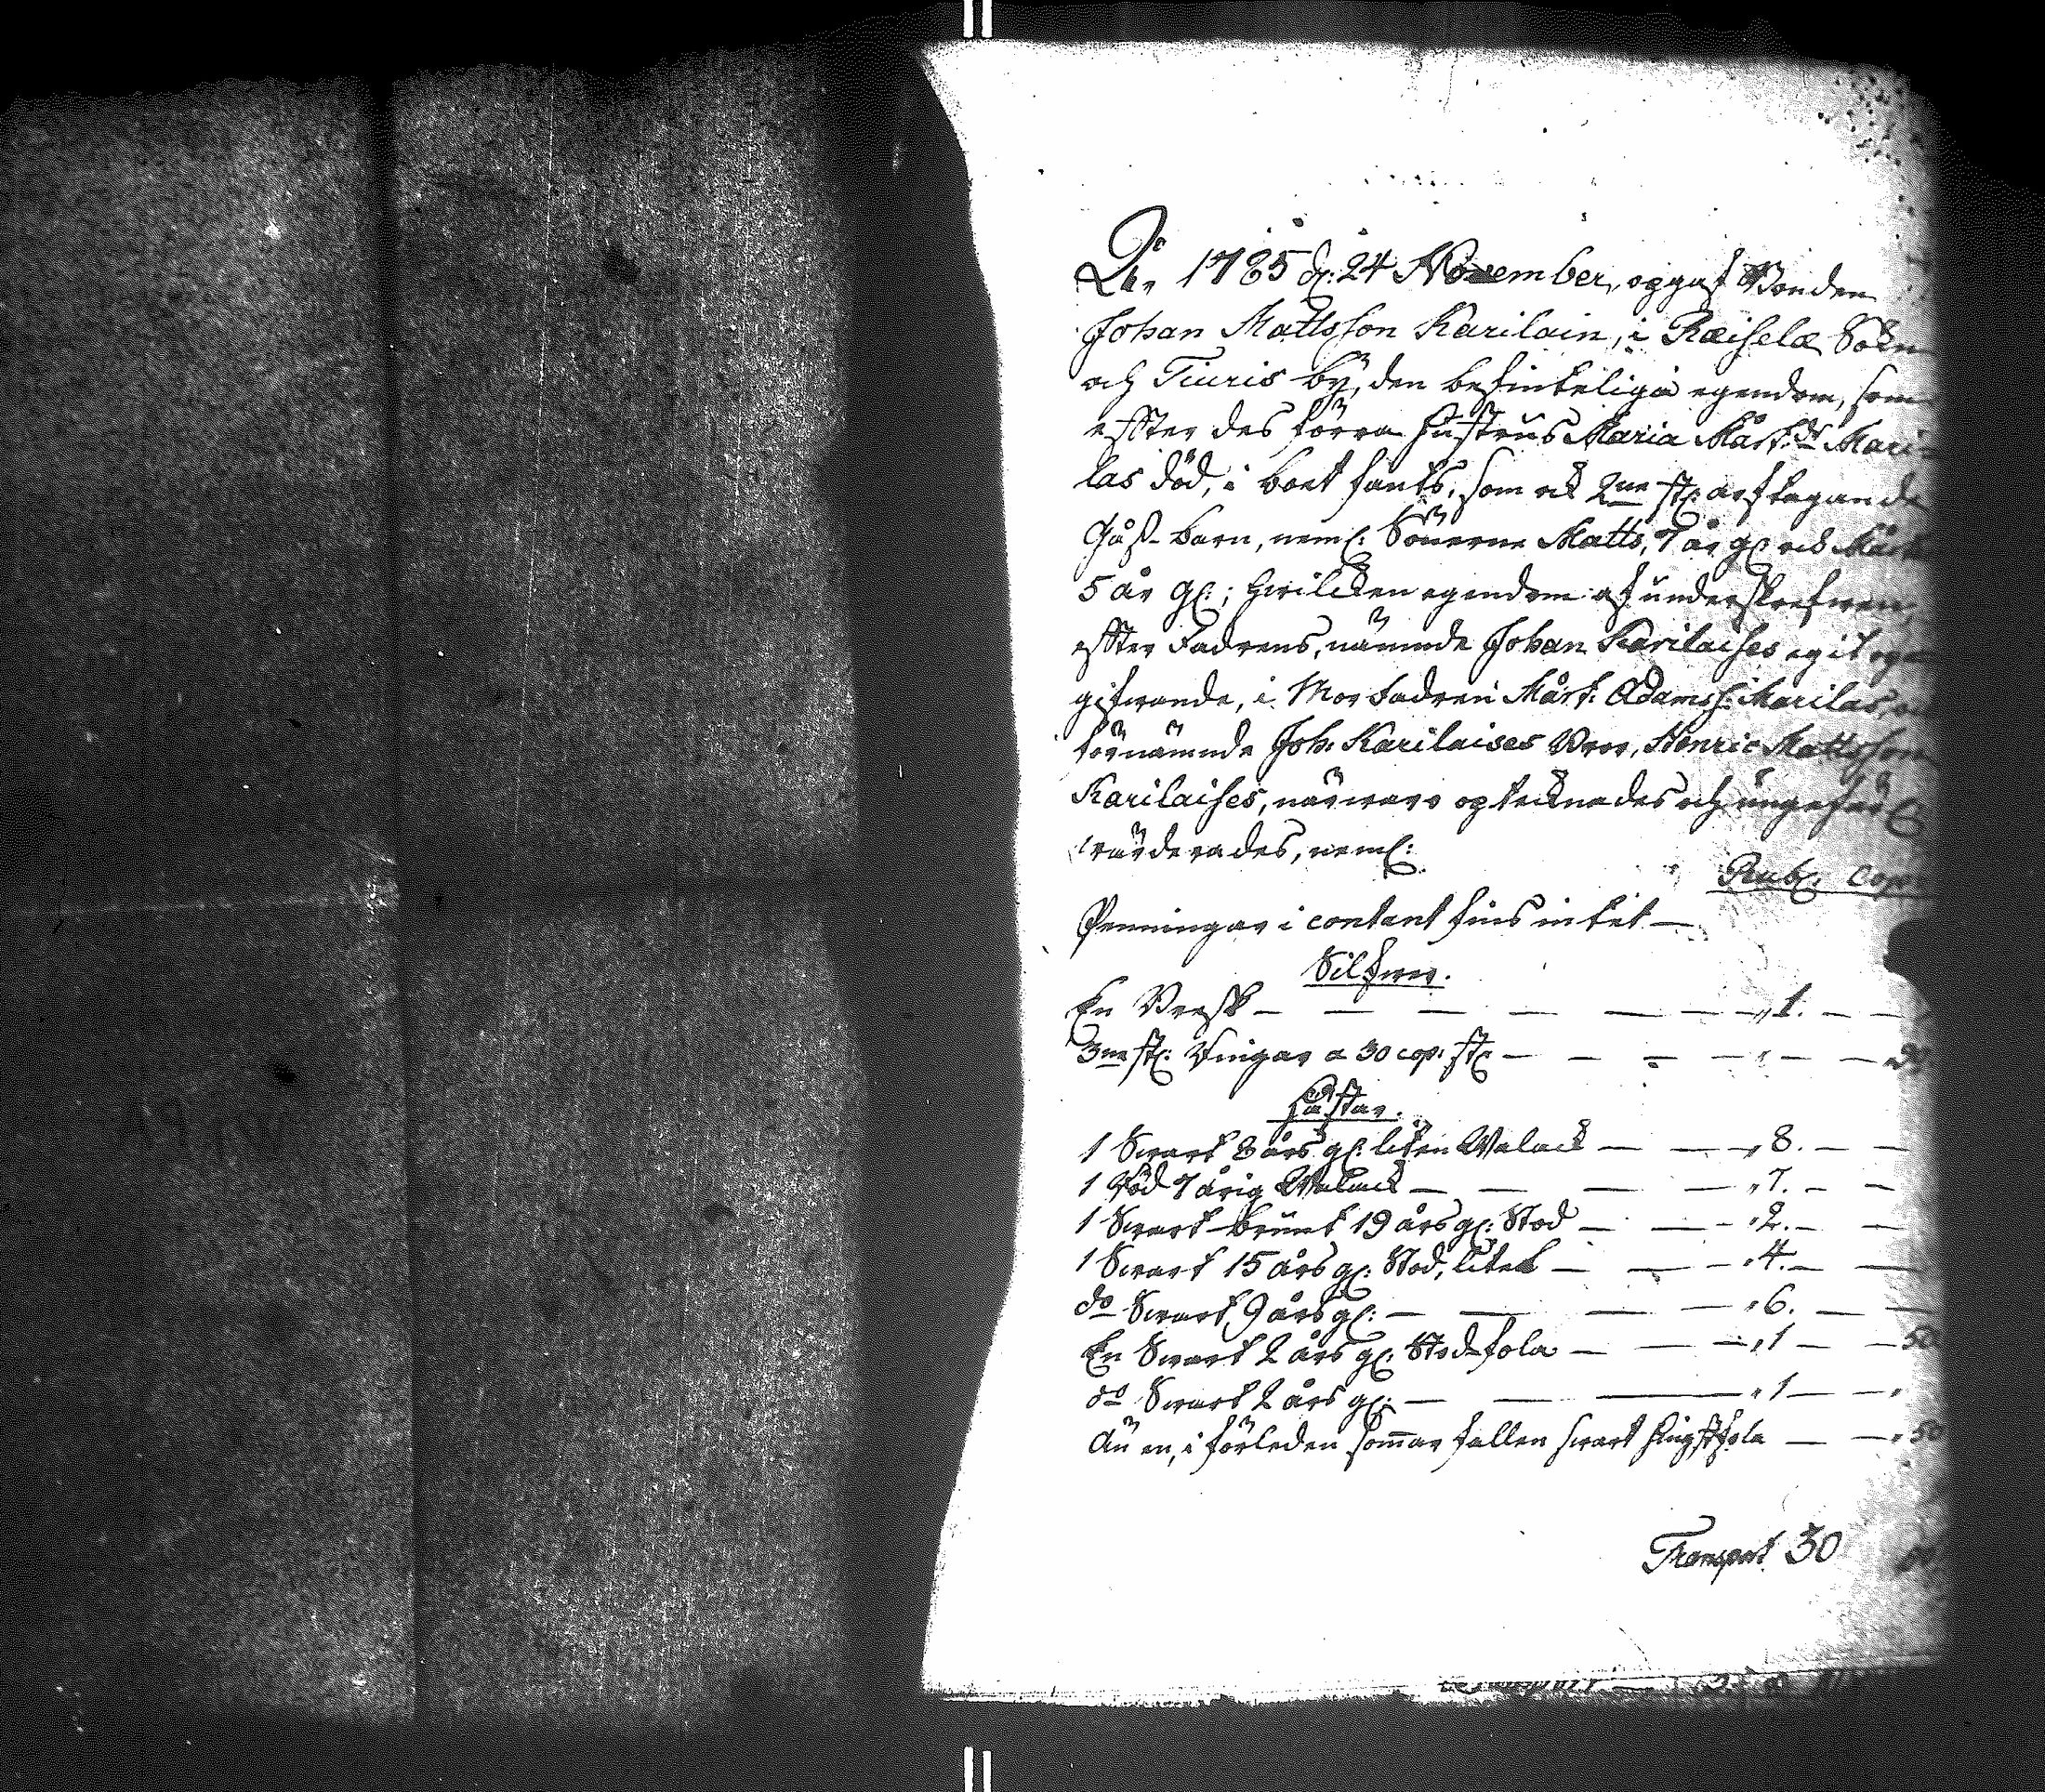 Åhr 1785 d: 24 November, opgaf Bonden
Johan Mattsson Karilain, i Ræiselæ Sokn
och Tiuris by, den befinteliga egendom, som
effter des förra Hustrus Maria Mårt:dr Mari-
las död, i boet fants, som ock 2ne st: arftagande
barn, neml: Sönerne Matts, 7 år gl: och Mårt
5 år gl:; hwilcken egendom af underskrefwen,
effter Fadrens, nämnde Johan Karilaises egit op-
gifwande, i Morfadren Mårt: Adamss: Marilas,
förnämnde Joh: Karilaises Bror, Henric Mattsson
Karilaises, närwaro optecknades och ungefärl:
wärderades, neml:
Rub: Cop
Penningar i contant fins intet —
Silfwer.
En Bresk — — — — — — " 1. — —
3ne st: Ringar a 30 cop: st: — — — — " — — 90
Hästar.
1 Swart 8 års gl: liten Walack — — " 8. — —
1 Röd 7 årig Walack — — — — " 7. — —
1 Swart-brunt 19 års gl: Stod — — — " 2. — —
1 Swart 15 års gl: Stod, litet — — — " 4. — —
do Swart 9 års gl: — — — — " 6. — —
En Swart 2 års gl: Stod-fola — — — " 1 — — 50
do Swart 2 års gl: — — — " 1 — — "
Än en, i förleden sommar fallen swart hingstfola — — " 50
Transport 30